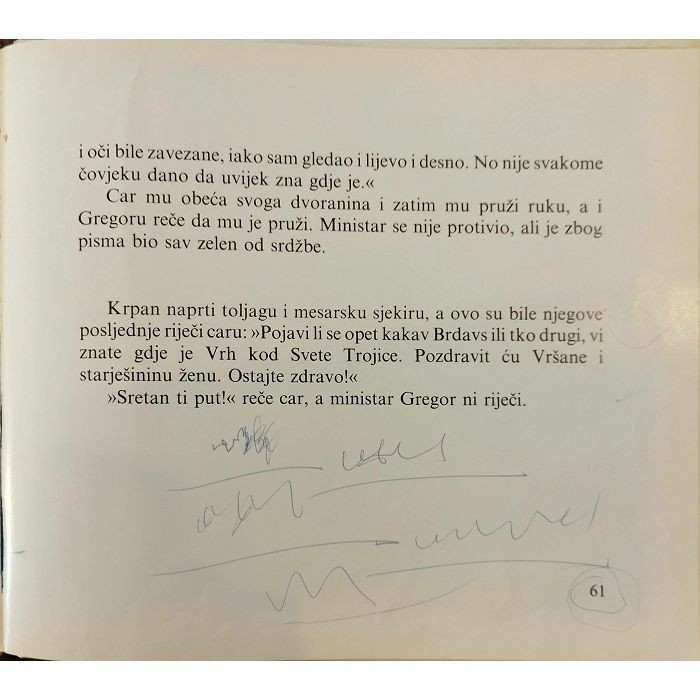 i oči bile zavezane, iako sam gledao i lijevo i desno. No nije svakome
čovjeku dano da uvijek zna gdje je.«
Car mu obeća svoga dvoranina i zatim mu pruži ruku, a i
Gregoru reče da mu je pruži. Ministar se nije protivio, ali je zbog
pisma bio sav zelen od srdžbe.
Krpan naprti toljagu i mesarsku sjekiru, a ovo su bile njegove
posljednje riječi caru: »Pojavi li se opet kakav Brdavs ili tko drugi, vi
znate gdje je Vrh kod Svete Trojice. Pozdravit ću Vršane i
starješininu ženu. Ostajte zdravo!«
»Sretan ti put!« reče car, a ministar Gregor ni riječi.
61